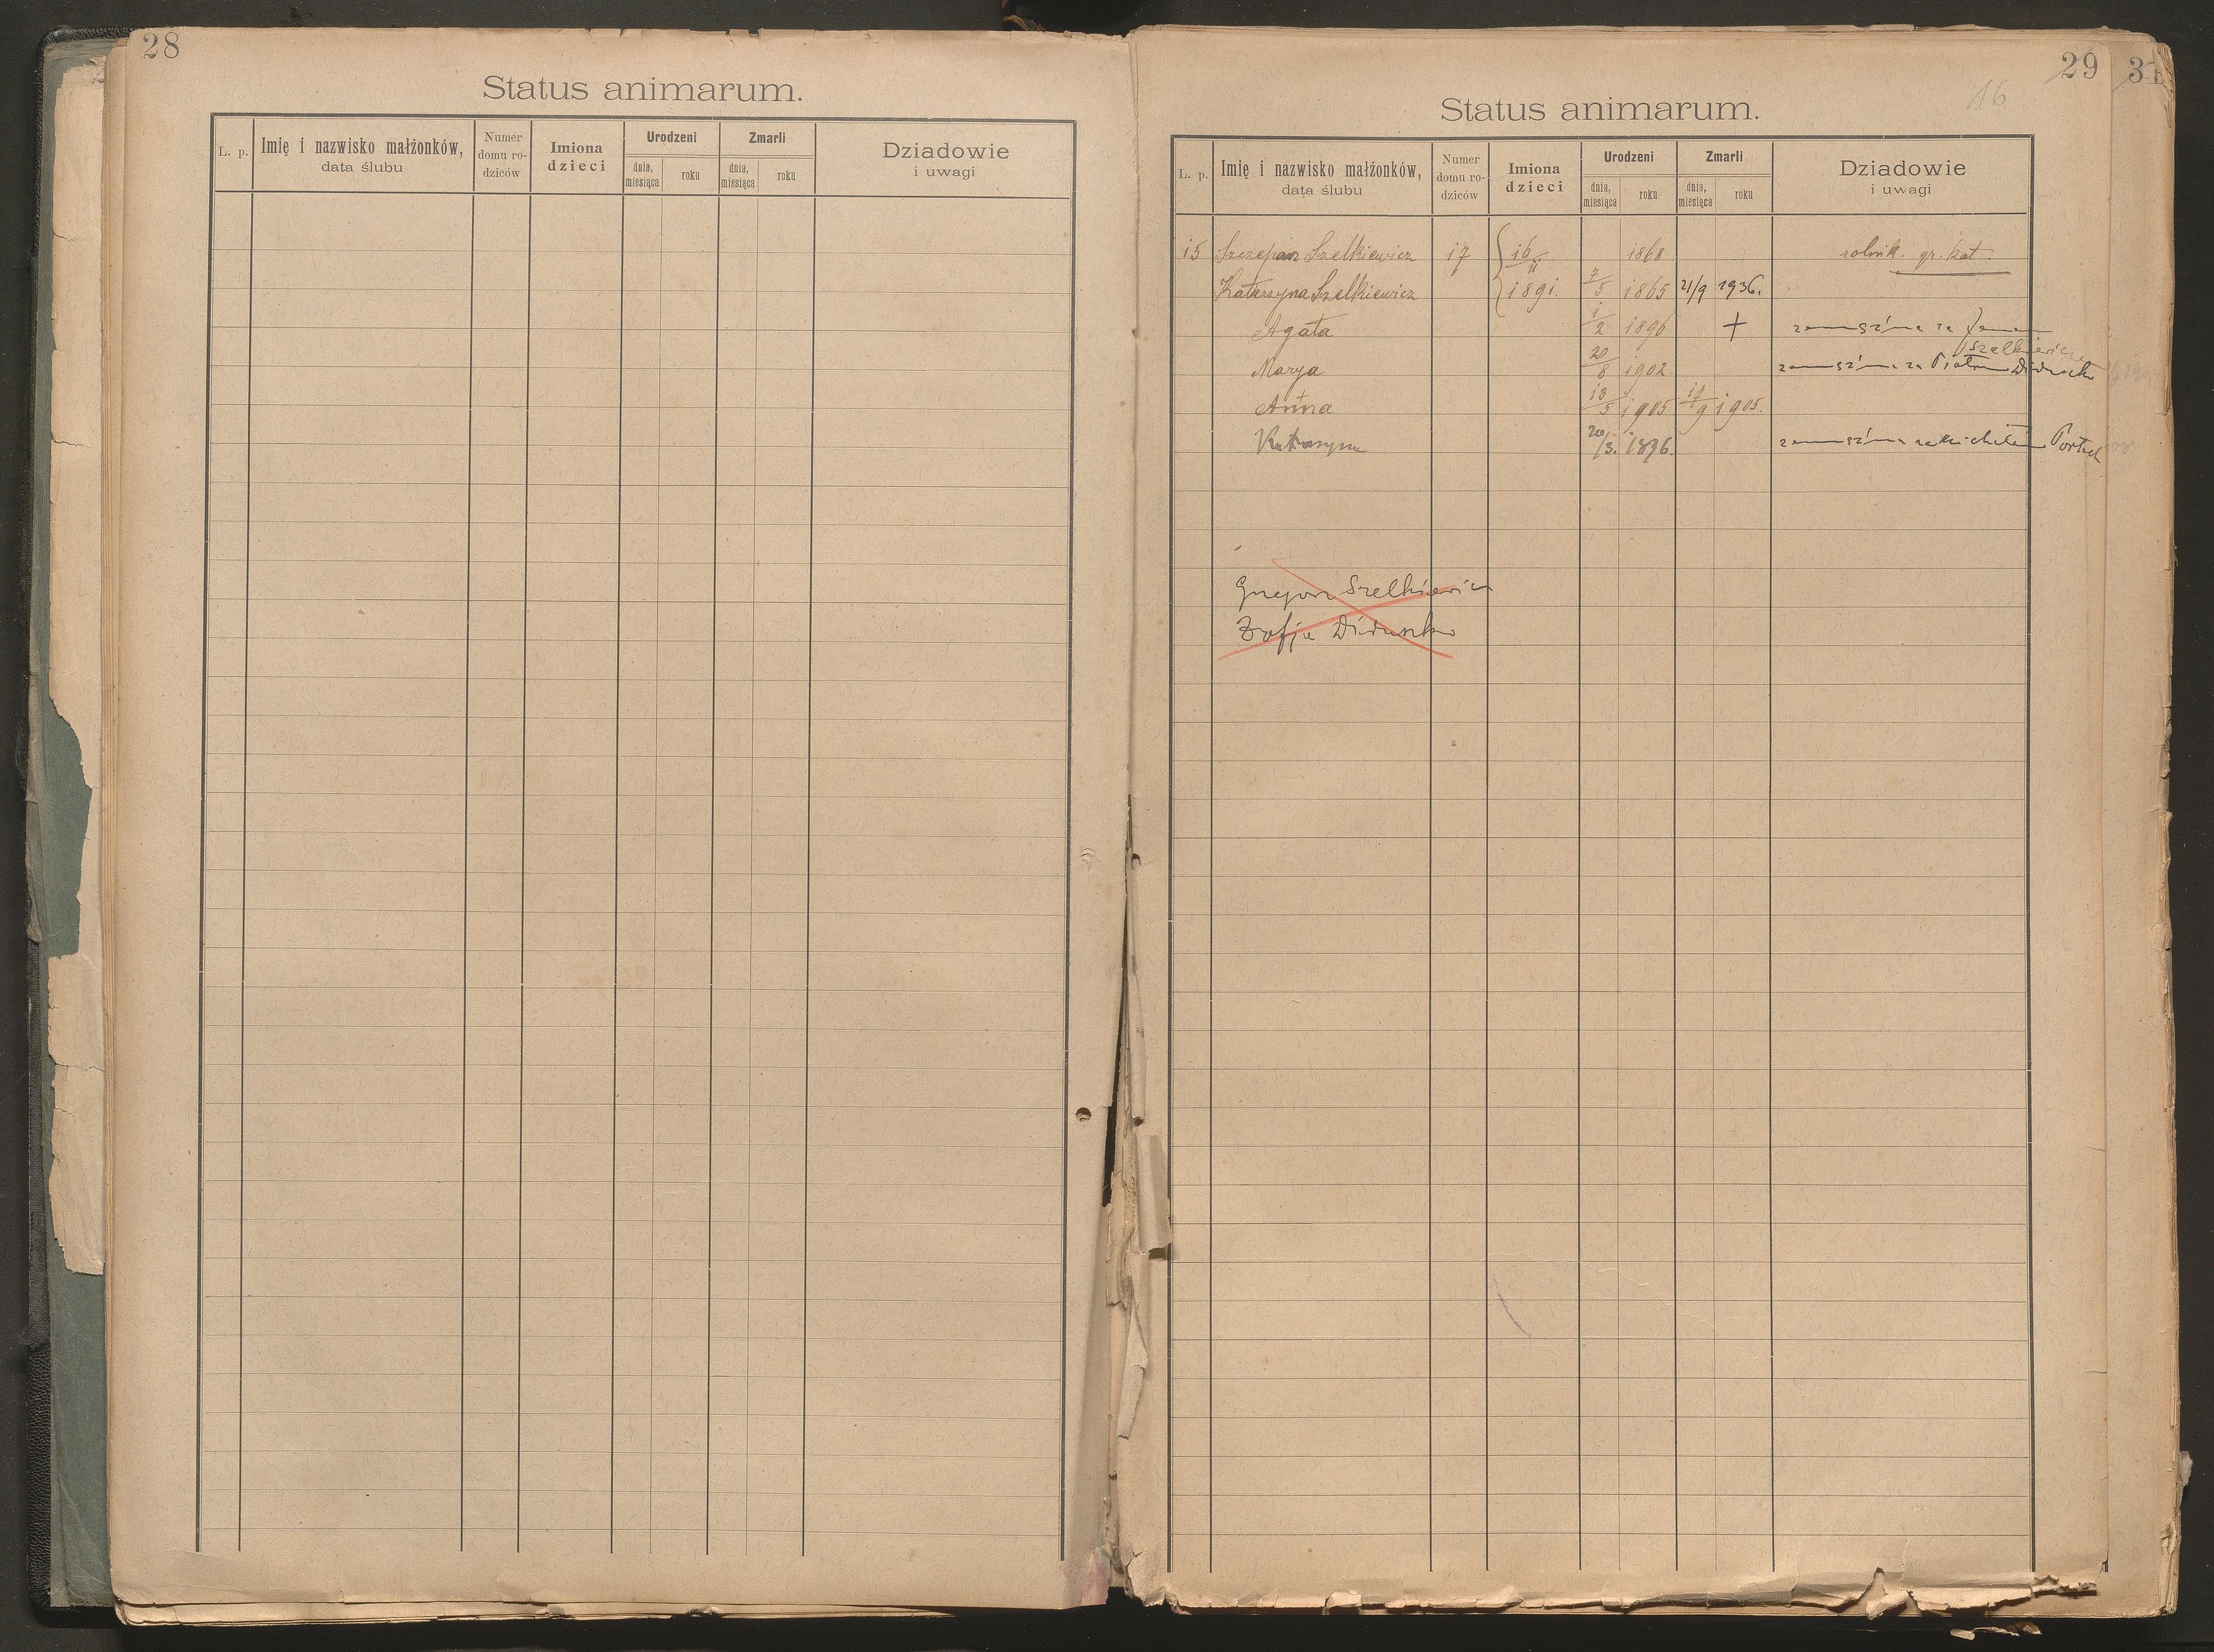 28
Status animarum.
L. p. Imię i nazwisko małżonków, data ślubu Numer domu rodziców Imiona dzieci Urodzeni dnia, miesiąca roku Zmarli dnia, miesiąca roku Dziadowie i uwagi
29 31
16
Status animarum.
L. p. Imię i nazwisko małżonków, data ślubu Numer domu ro-dziców Imiona dzieci Urodzeni dnia, miesiąca roku Zmarli dnia, miesiąca roku Dziadowie i uwagi
15 Szczepan Szelkiewicz 17 16/11 1868 rolnik. gr. kat.
Katarzyna Szelkiewicz 1891. 7/5 1865 21/9 1936.
Agata 1/2 1896 + zamężna za Janem
Szelkiewiczem
Marya 20/8 1902. zamężna za Piotrem Diduszko
Anna 13/5 1905 17/9 1905.
Katarzyna 20/3. 1896. zamężna za Michałem
Grzegorz Szelkiewicz
Zofja Diduszko